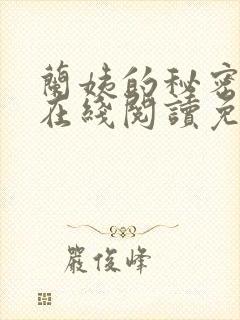 蘭姨的秘密
在綫閱讀免
嚴俊峰